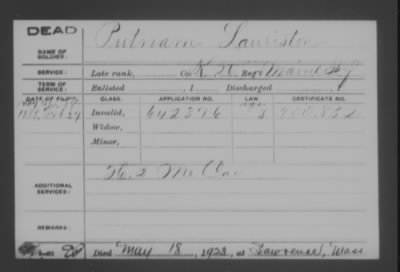 DEAD
NAME OF SOLDIER: Putnam Lauriston
SERVICE: Late rank, Co. K, Reg't Maine
TERM OF SERVICE: Enlisted , 1 Discharged , 1
DATE OF FILING. CLASS. APPLICATION NO. LAW. CERTIFICATE NO.
Invalid, 642376
Widow,
Minor,
ADDITIONAL SERVICES: H, 2 Me Cav
REMARKS:
Died May 18, 1923, at Lawrence, Mass